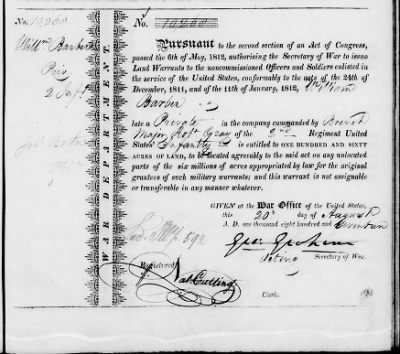 No. 10260
Willm Barber
No. 10260
WAR DEPARTMENT.
Pursuant to the second section of an Act of Congress,
passed the 6th of May, 1812, authorising the Secretary of War to issue
Land Warrants to the noncommissioned Officers and Soldiers enlisted in
the service of the United States, conformably to the acts of the 24th of
December, 1811, and of the 11th of January, 1812, William
Barber
late a Private in the company commanded by Brevet
Major Robt. Gray of the 2nd Regiment United
States' Infantry is entitled to ONE HUNDRED AND SIXTY
ACRES OF LAND, to be located agreeably to the said act on any unlocated
parts of the six millions of acres appropriated by law for the original
grantees of such military warrants; and this warrant is not assignable
or transferable in any manner whatever.
GIVEN at the War Office of the United States,
this 20th day of August
A. D. one thousand eight hundred and
Geo: Graham
Acting Secretary of War.
Registered
Nat Cutting
Clerk.